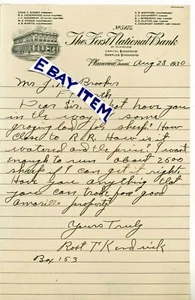 The First National Bank
Aug 28, 1930
Mr J. Brooks
Dear Sir. What have you
in the way of some
grazing land for sheep? How
close to R.R. How is it
watered and the price? I want
enough to run about 2500
sheep if I can get it right.
Have you anything that
you can trade for good
Amarillo property
Yours Truly
Robt T. Kendrick
Box 153
EBAY ITEM